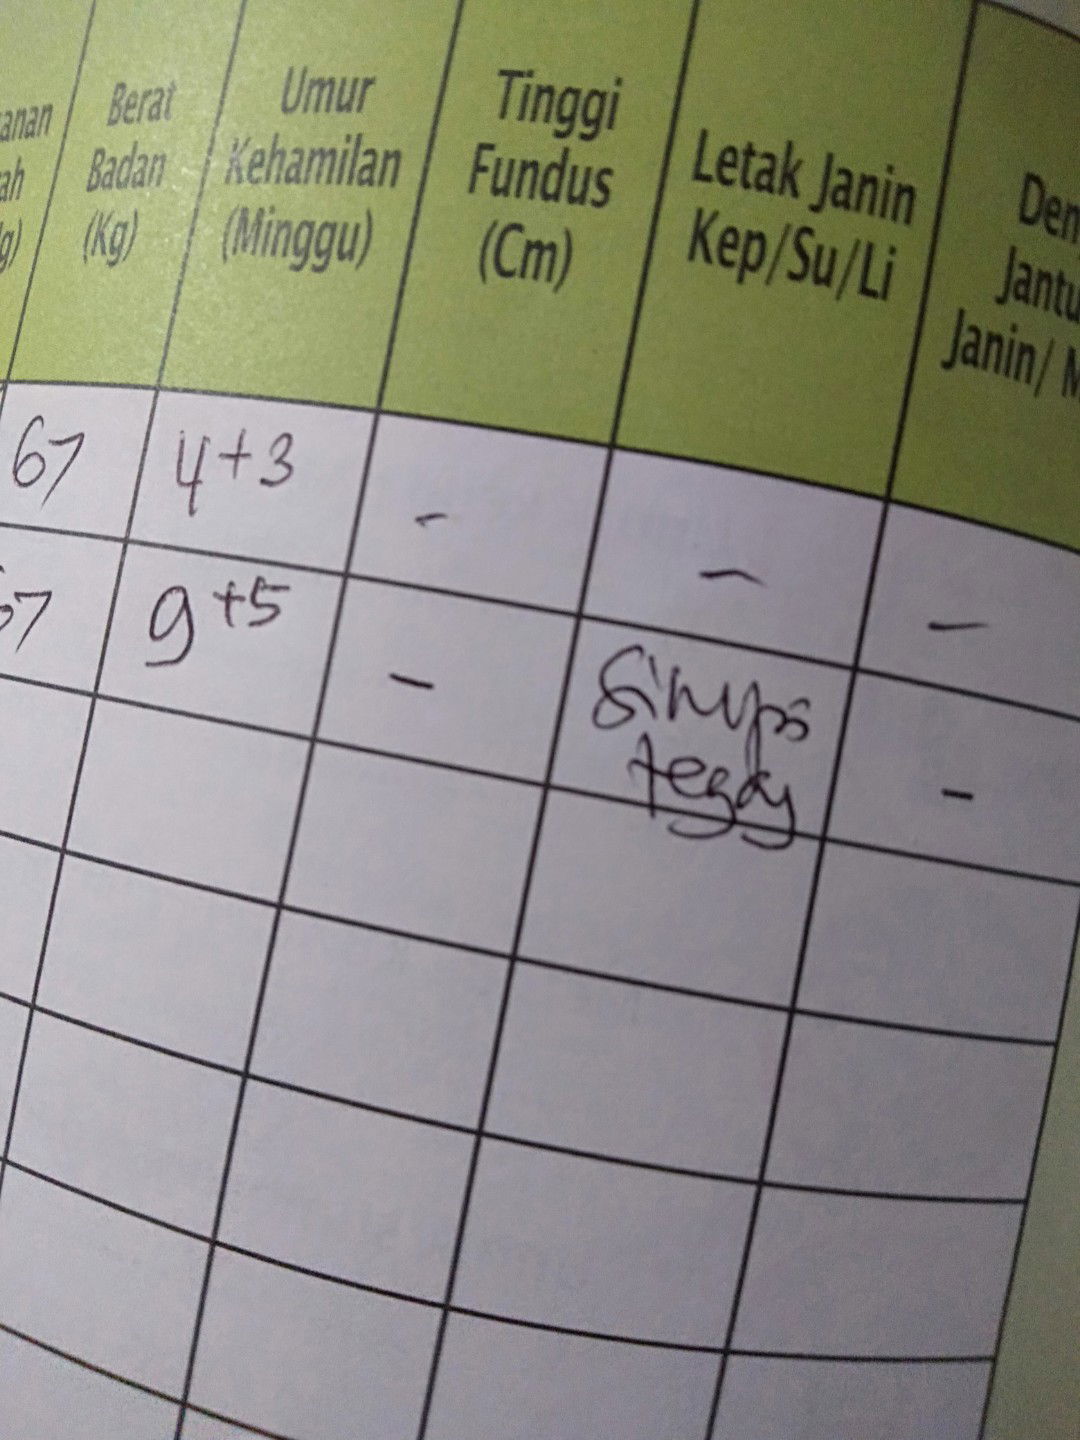 anan
ah
g)
Berat
Badan
(Kg)
Umur
Kehamilan
(Minggu)
Tinggi
Fundus
(Cm)
Letak Janin
Kep/Su/Li
Den
Jantu
Janin/ M
67 4+3 - - -
67 9+5 - -